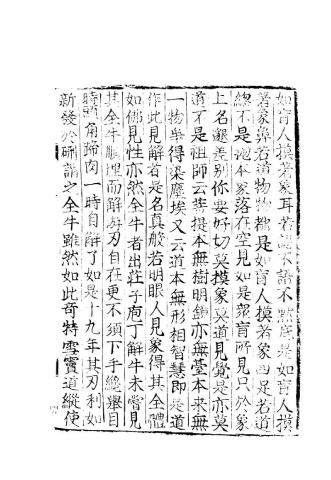 如盲人摸著象耳若道不語不默底是如盲人摸
著象鼻若道物物都是如盲人摸著象四足若道
總不是抛本象落在空見如是衆盲所見只於象
上名邈差別你要好切莫摸象莫道見覺是亦莫
道不是祖師云菩提本無樹明鏡亦無臺本來無
一物爭得染塵埃又云道本無形相智慧即是道
作此見解者是名真般若明眼人見象得其全體
如佛見性亦然全牛者出莊子庖丁解牛未嘗見
其全牛順理而解游刃自在更不須下手纔舉目
時頭角蹄肉一時自解了如是十九年其刃利如
新發於硎謂之全牛雖然如此奇特雪竇道縱使